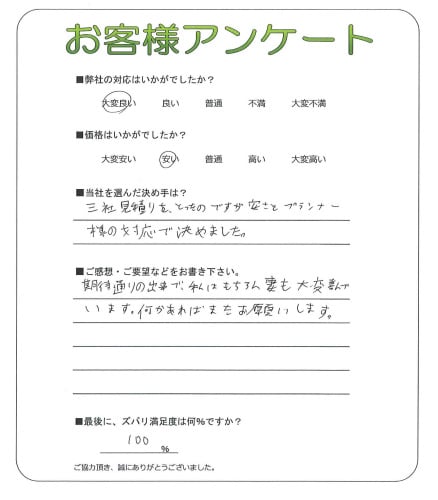 お客様アンケート
■弊社の対応はいかがでしたか?
大変良い 良い 普通 不満 大変不満
■価格はいかがでしたか?
大変安い 安い 普通 高い 大変高い
■当社を選んだ決め手は?
三社見積りを、とったのですが安さとプランナー
様の対応で決めました。
■ご感想・ご要望などをお書き下さい。
期待通りの出来で、私はもちろん妻も大変喜んで
います。何かあればまたお願いします。
■最後に、ズバリ満足度は何%ですか?
100 %
ご協力頂き、誠にありがとうございました。